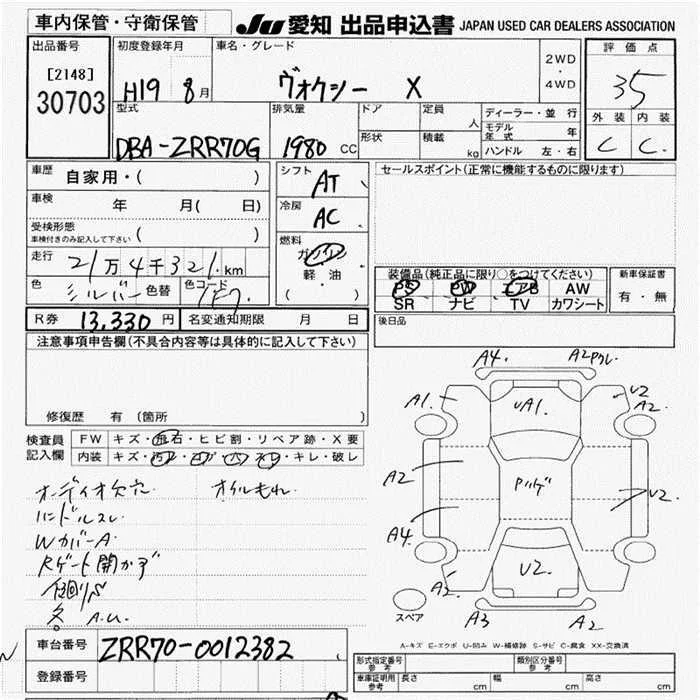 車内保管・守衛保管
JU 愛知 出品申込書 JAPAN USED CAR DEALERS ASSOCIATION
出品番号
[2148]
30703
初度登録年月
H19 8月
車名・グレード
ヴォクシー X
2WD
・
4WD
評価点
3.5
外装 内装
C C
型式
DBA-ZRR70G
排気量
1980 CC
ドア
定員
人
形状
積載
kg
ディーラー・並行
モデル年式 年
ハンドル 左・右
車歴 自家用・( )
車検 年 月( 日)
受検形態
車検付きのみ記入して下さい ( )
走行 21万4千321km
色 シルバー 色替 色コード 1F7
シフト AT
冷房 AC
燃料
ガソリン
軽・油
( )
R券 13,330円 名変通知期限 月 日
セールスポイント(正常に機能するものに限ります)
装備品(純正品に限り○をつけてください)
PS PW エアB AW
SR ナビ TV カワシート
新車保証書
有・無
後日品
注意事項申告欄(不具合内容等は具体的に記入して下さい)
修復歴 有(箇所 )
検査員記入欄
FW キズ・飛石・ヒビ割・リペア跡・X要
内装 キズ・汚レ・コゲ・穴・スレ・キレ・破レ
オーディオ欠穴 オイルもれ
ハンドルスレ
WカバーA
Rゲート開かず
A.U.
車台番号 ZRR70-0012382
登録番号
A4.
A2
A1.
UA1.
U2
A2.
A2
Pルゲ
U2.
A4.
A2.
U2.
A3
A2
スペア
A-キズ E-エクボ U-凹み W-補修跡 S-サビ C-腐食 XX-交換済
形式指定番号
参考
類別区分番号
参考
車庫証明用
参考
長さ cm 幅 cm 高さ cm